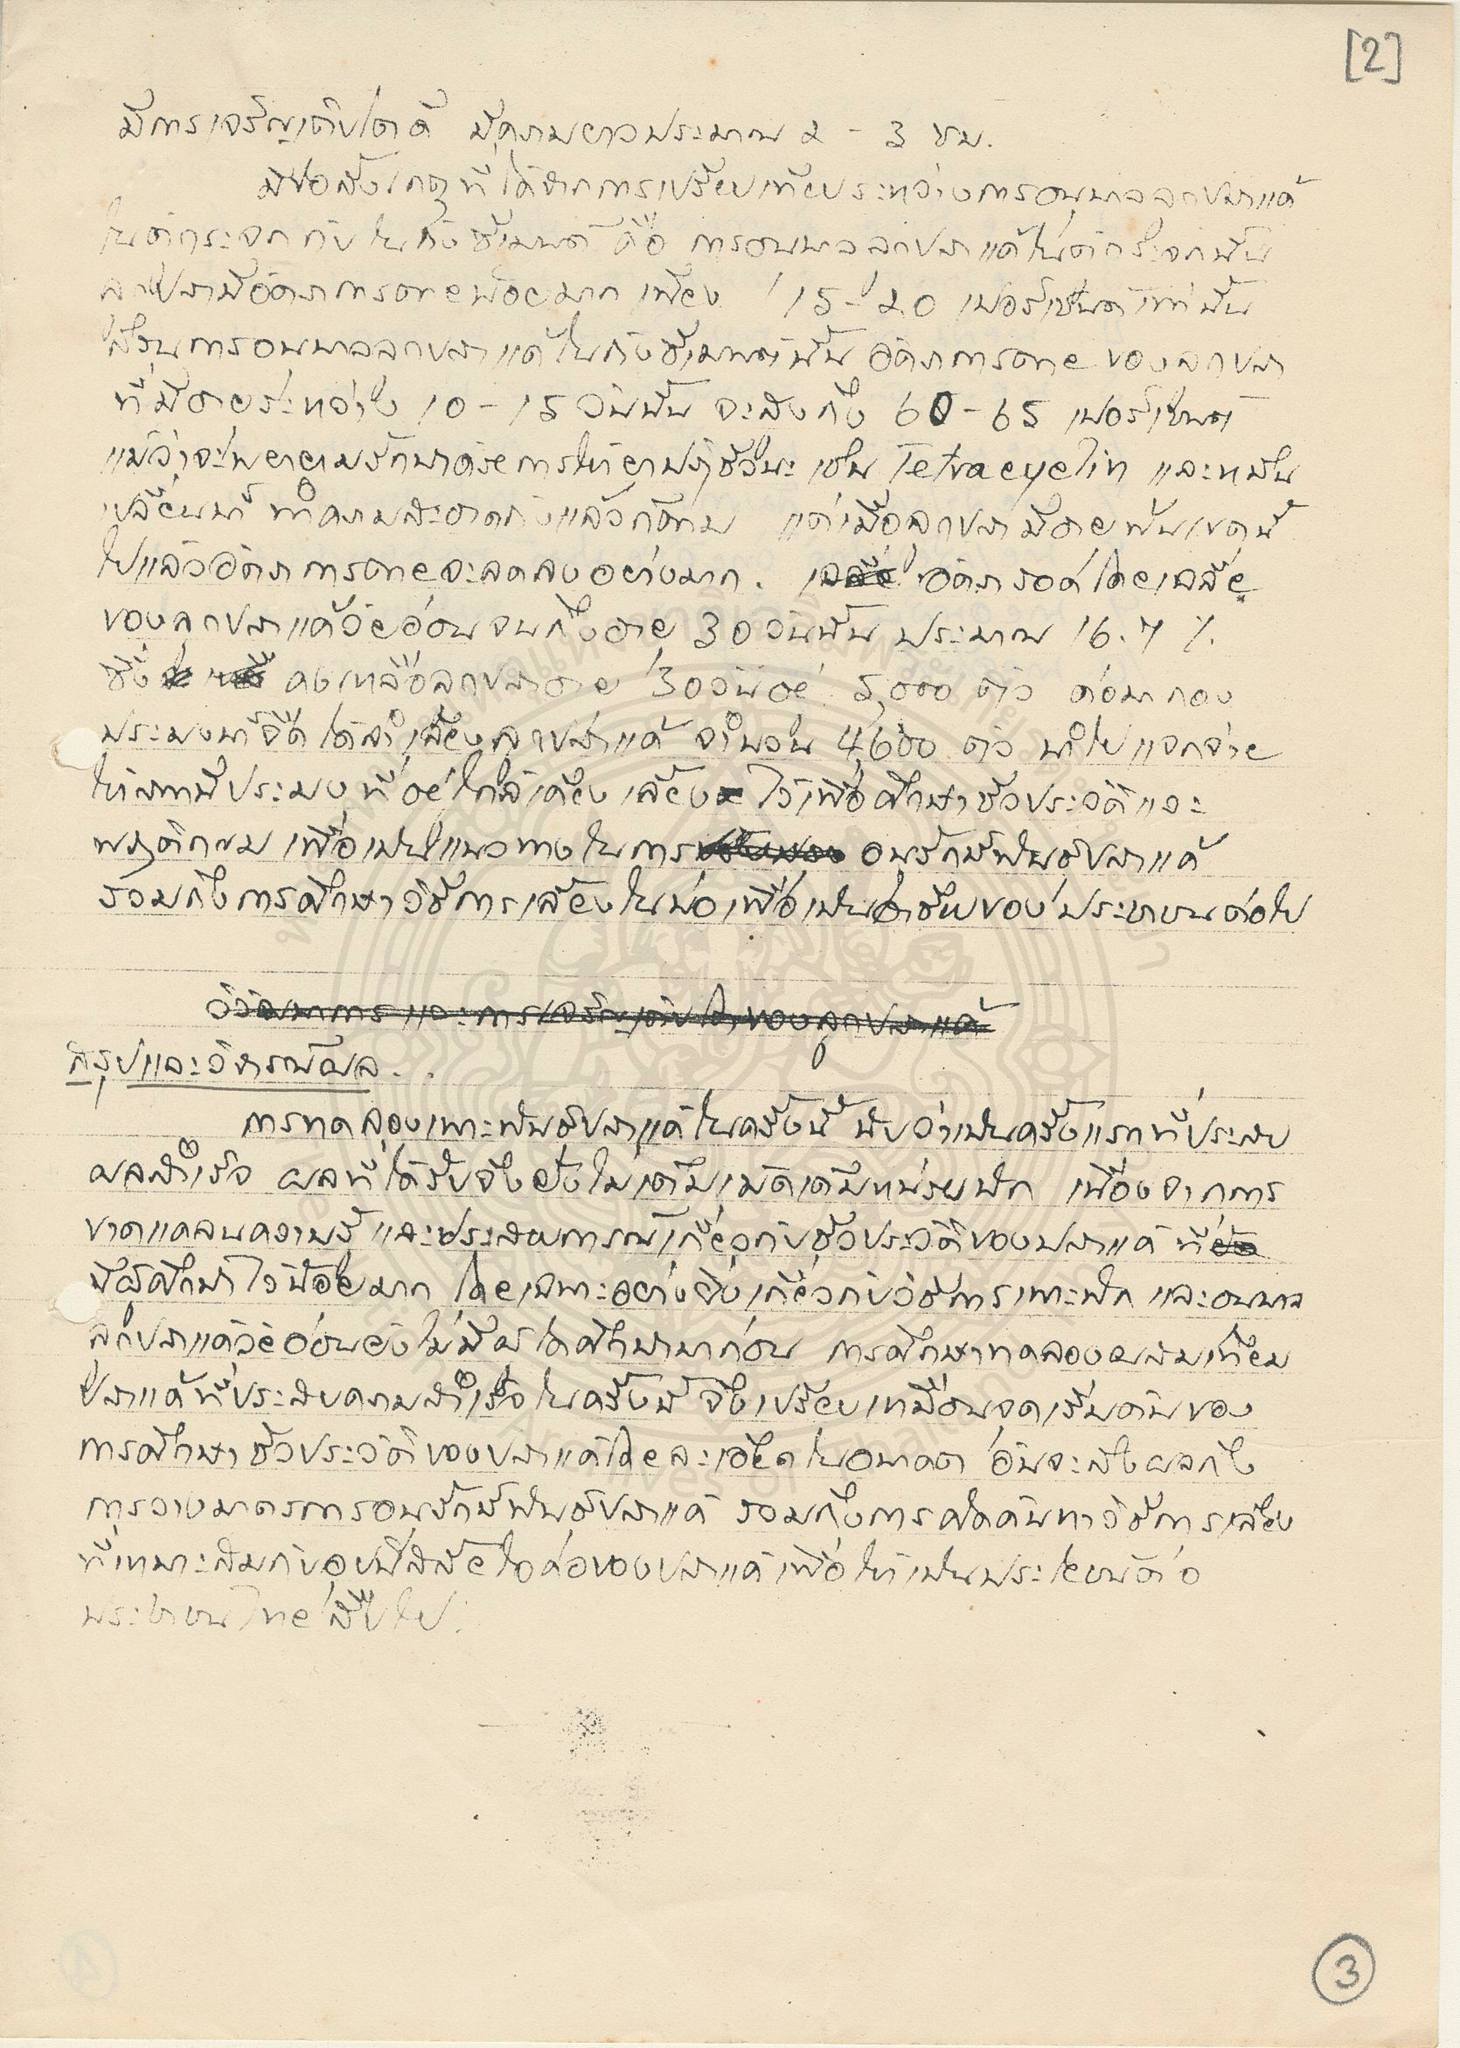 [2]
มีการเจริญเติบโตดี มีความยาวประมาณ 2 - 3 ซม.
มีข้อสังเกตุที่ได้จากการเปรียบเทียบระหว่างการอนุบาลลูกปลาแค้
ในตู้กระจกกับในถังซีเมนต์ คือ การอนุบาลลูกปลาแค้ในตู้กระจกนั้น
ลูกปลามีอัตราการตายน้อยมาก เพียง 15-20 เปอร์เซ็นต์เท่านั้น
ส่วนการอนุบาลลูกปลาแค้ในถังซีเมนต์นั้น อัตราการตายของลูกปลา
ที่มีอายุระหว่าง 10-15 วันนั้น จะสูงถึง 60-65 เปอร์เซ็นต์
แม้ว่าจะพยายามรักษาด้วยการให้ยาปฏิชีวนะ เช่น Tetracyclin และหมั่น
เปลี่ยนน้ำ ทำความสะอาดถังแล้วก็ตาม แต่เมื่อลูกปลามีอายุพ้นเขตนี้
ไปแล้วอัตราการตายจะลดลงอย่างมาก. อัตรารอดโดยเฉลี่ย
ของลูกปลาแค้วัยอ่อนจนถึงอายุ 30 วันนั้น ประมาณ 16.7 %.
ซึ่ง คงเหลือลูกปลาอายุ 30 วันอยู่ 5,000 ตัว ต่อมากอง
ประมงน้ำจืด ได้ลำเลียงลูกปลาแค้ จำนวน 4,600 ตัว นำไปแจกจ่าย
ให้สถานีประมงที่อยู่ใกล้เคียงเลี้ยง ไว้เพื่อศึกษาชีวประวัติและ
พฤติกรรม เพื่อเป็นแนวทางในการ อนุรักษ์พันธุ์ปลาแค้
รวมถึงการศึกษาวิธีการเลี้ยงในบ่อเพื่อเป็นอาชีพของประชาชนต่อไป
วิวัฒนาการและการเจริญเติบโตของลูกปลาแค้
สรุปและวิจารณ์ผล.
การทดลองเพาะพันธุ์ปลาแค้ในครั้งนี้ นับว่าเป็นครั้งแรกที่ประสบ
ผลสำเร็จ ผลที่ได้รับจึงยังไม่เต็มเม็ดเต็มหน่วยนัก เนื่องจากการ
ขาดแคลนความรู้และประสบการณ์เกี่ยวกับชีวประวัติของปลาแค้ ที่
มีผู้ศึกษาไว้น้อยมาก โดยเฉพาะอย่างยิ่งเกี่ยวกับวิธีการเพาะฟัก และอนุบาล
ลูกปลาแค้วัยอ่อนยังไม่มีผู้ใดศึกษามาก่อน การศึกษาทดลองผสมเทียม
ปลาแค้ที่ประสบความสำเร็จในครั้งนี้ จึงเปรียบเหมือนจุดเริ่มต้นของ
การศึกษาชีวประวัติของปลาแค้โดยละเอียดในอนาคต อันจะส่งผลถึง
การวางมาตรการอนุรักษ์พันธุ์ปลาแค้ รวมถึงการคิดค้นหาวิธีการเลี้ยง
ที่เหมาะสมกับอุปนิสัย ของปลาแค้เพื่อให้เป็นประโยชน์ต่อ
ประชาชนไทยสืบไป.
3